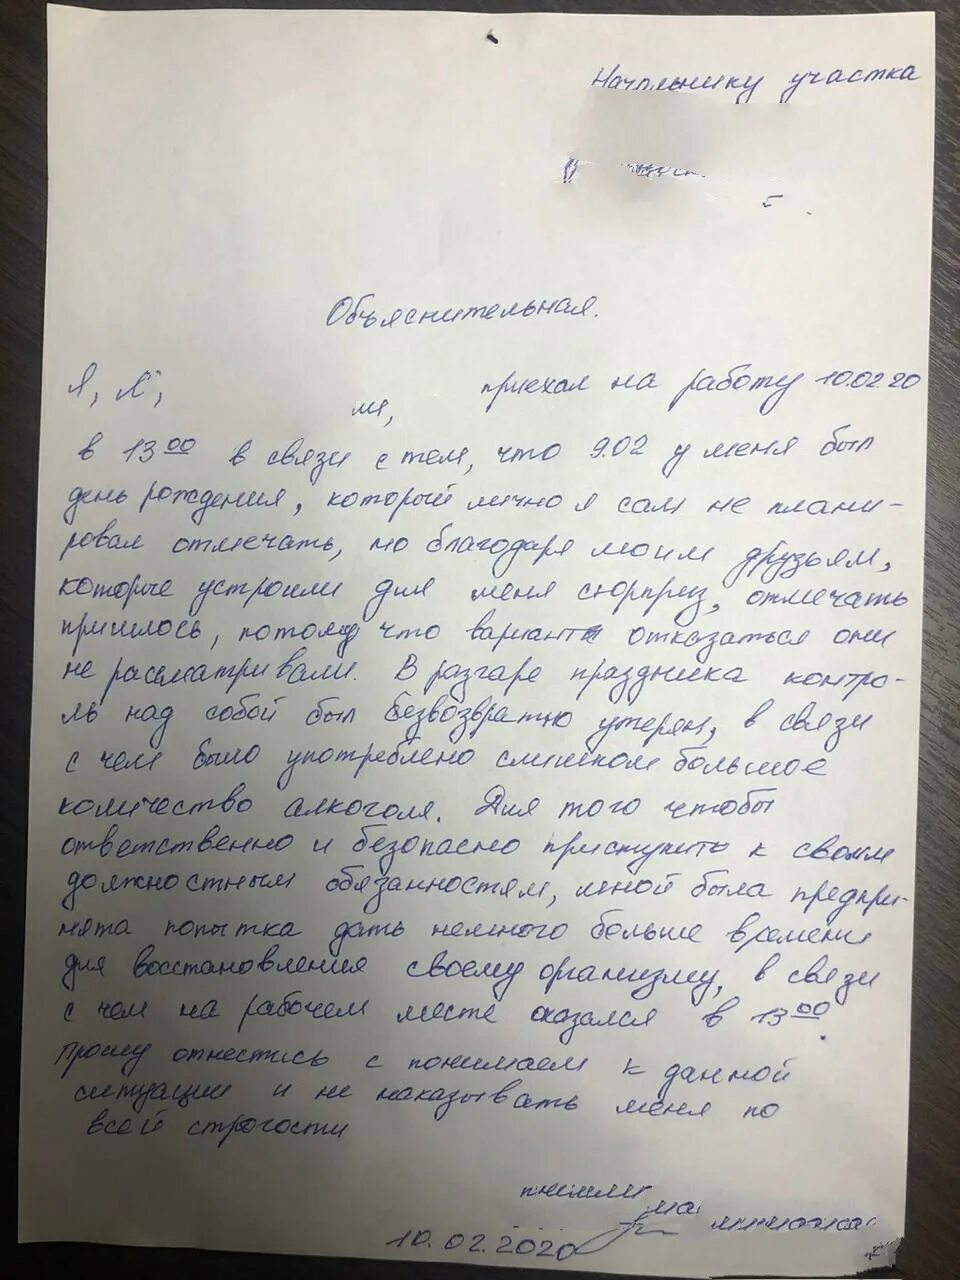 Начальнику участка
Объяснительная.
Я, приехал на работу 10.02.20
в 13 00 в связи с тем, что 9.02 у меня был
день рождения, который лично я сам не плани-
ровал отмечать, но благодаря моим друзьям,
которые устроили для меня сюрприз, отмечать
пришлось, потому что варианты отказаться они
не рассматривали. В разгаре праздника контро-
ль над собой был безвозвратно утерян, в связи
с чем было употреблено слишком большое
количество алкоголя. Для того чтобы
ответственно и безопасно приступить к своим
должностным обязанностям, мной была предпри-
нята попытка дать немного больше времени
для восстановления своему организму, в связи
с чем на рабочем месте оказался в 13 00.
Прошу отнестись с понимаем к данной
ситуации и не наказывать меня по
всей строгости
10.02.2020